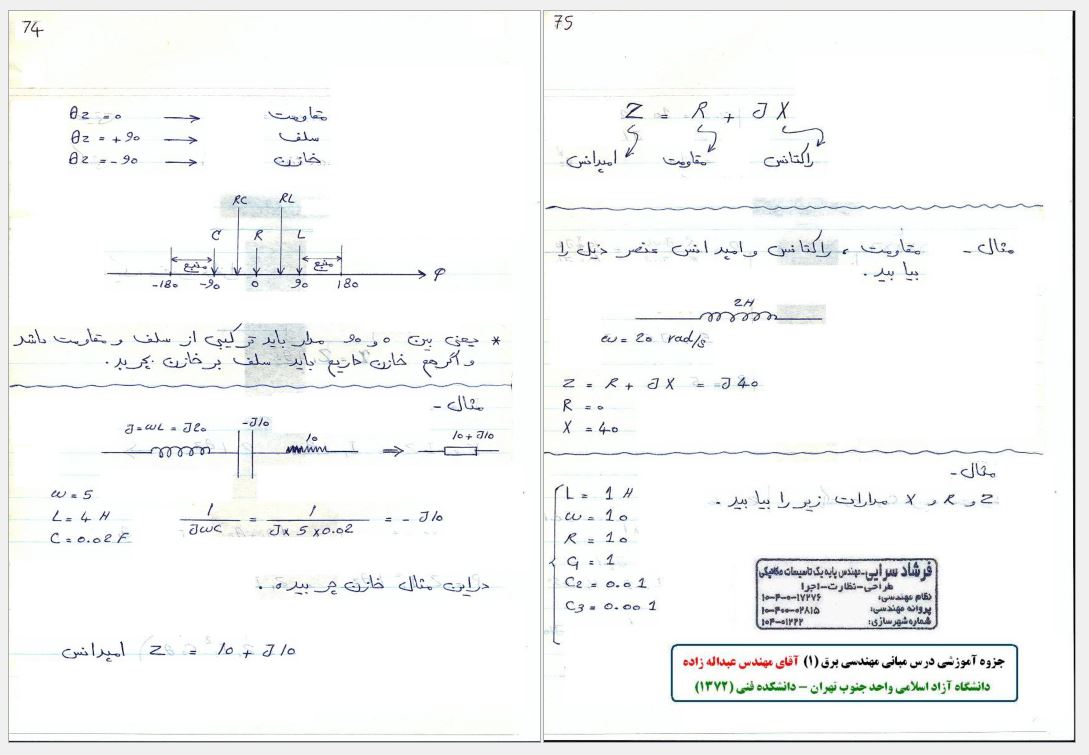 74
θz = 0 → مقاومت
θz = +90 → سلف
θz = -90 → خازن
RC RL
C R L
منبع منبع
-180 -90 0 90 180 φ
* یعنی بین 0 و 90 مدار باید ترکیبی از سلف و مقاومت باشد
و اگر هم خازن داریم باید سلف بر خازن بچربد.
مثال -
J=ωL = J20 -J10 10 ⇒ 10+J10
ω = 5
L = 4 H
C = 0.02 F
1/JωC = 1/J×5×0.02 = -J10
در این مثال خازن چربیده.
امپدانس Z = 10 + J10
75
Z = R + JX
امپدانس مقاومت راکتانس
مثال - مقاومت، راکتانس و امپدانس عنصر ذیل را
بیابید.
2H
ω = 20 rad/s
Z = R + JX = J40
R = 0
X = 40
مثال -
Z و R و X مدارات زیر را بیابید.
L = 1 H
ω = 10
R = 10
C1 = 1
C2 = 0.01
C3 = 0.001
فرشاد سرایی-مهندس پایه یک تاسیسات مکانیکی
طراحی-نظارت-اجرا
نظام مهندسی: ۱۰-۴-۰-۱۷۲۷۶
پروانه مهندسی: ۱۰-۴۰۰-۰۲۸۱۵
شماره شهرسازی: ۱۰۴-۰۱۲۲۲
جزوه آموزشی درس مبانی مهندسی برق (۱) آقای مهندس عبداله زاده
دانشگاه آزاد اسلامی واحد جنوب تهران – دانشکده فنی (۱۳۷۲)